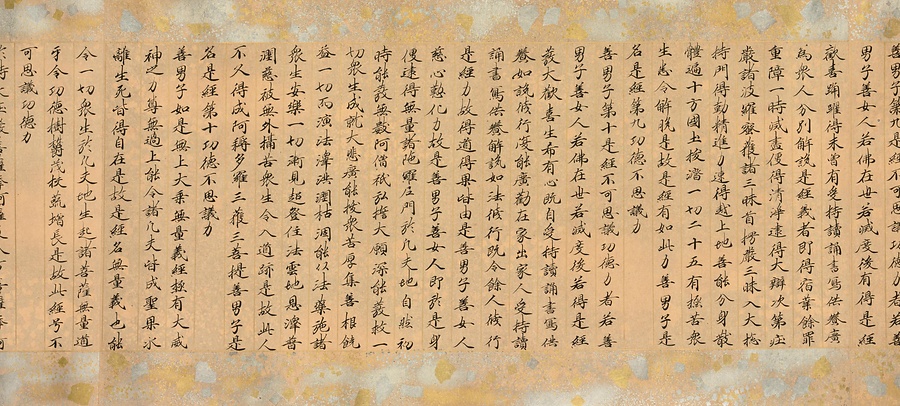 男子善女人若佛在世若滅度後有得是經
歡喜踊躍得未曾有受持讀誦書寫供養廣
為衆人分別解說是經義者即得宿業餘罪
重障一時滅盡便得清淨逮得大辯次第莊
嚴諸波羅蜜獲諸三昧首楞嚴三昧入大揔
持門得勤精進力速得越上地善能分身散
體遍十方國土拔濟一切二十五有極苦衆
生悉令解脫是故是經有如此力善男子是
名是經第九功德不思議力
善男子第十是經不可思議功德力者若善
男子善女人若佛在世若滅度後若得是經
發大歡喜生希有心既自受持讀誦書寫供
養如說修行復能廣勸在家出家人受持讀
誦書寫供養解說如法修行既令餘人修行
是經力故得道得果皆由是善男子善女人
慈心懃化力故是善男子善女人即於是身
便逮得無量諸陁羅尼門於凡夫地自然初
時能發無數阿僧祇弘誓大願深能發救一
切衆生成就大悲廣能拔衆苦厚集善根饒
益一切而演法澤洪潤枯涸能以法藥施諸
衆生安樂一切漸見超登住法雲地恩澤普
潤慈被無外攝苦衆生令入道跡是故此人
不久得成阿耨多羅三藐三菩提善男子是
名是經第十功德不思議力
善男子如是無上大乘無量義經極有大威
神之力尊無過上能令諸凡夫皆成聖果永
離生死皆得自在是故是經名無量義也能
令一切衆生於凡夫地生起諸菩薩無量道
牙令功德樹欝茂扶疏增長是故此經号不
可思議功德力